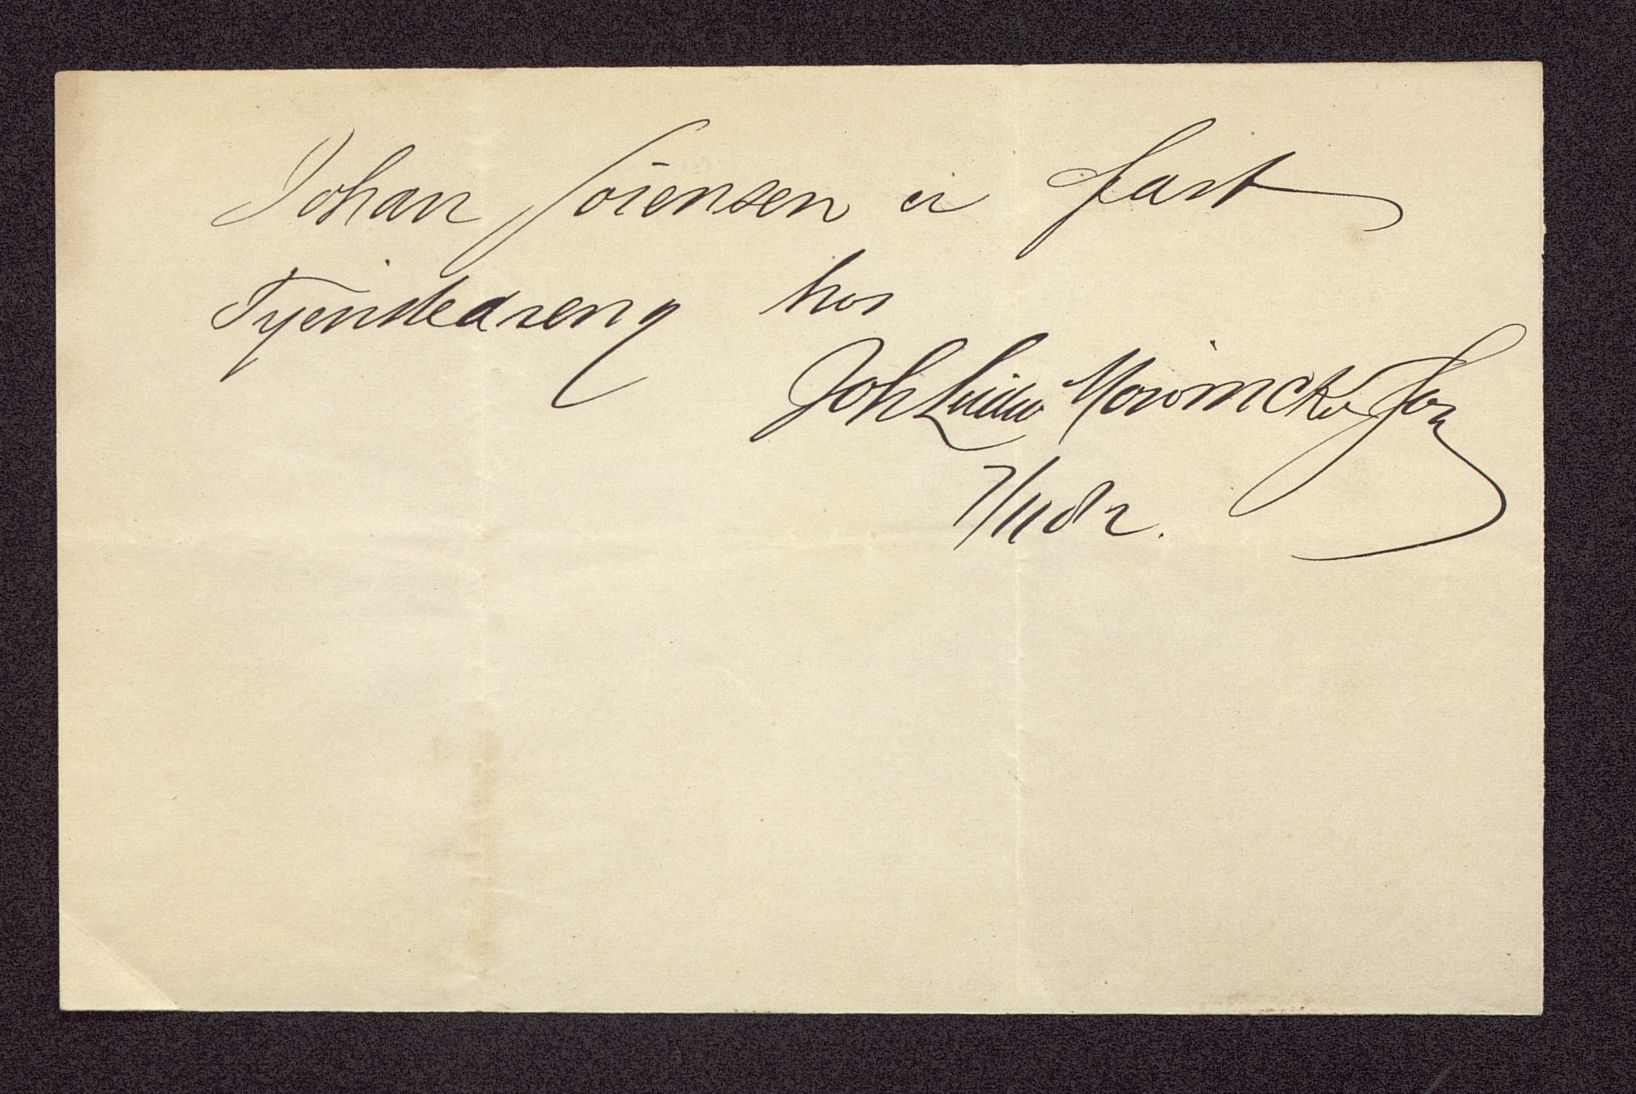 Johan Sørensen er fast
Tjenstedreng hos
Joh Ludw Mowinckel Jon
7/11 82.